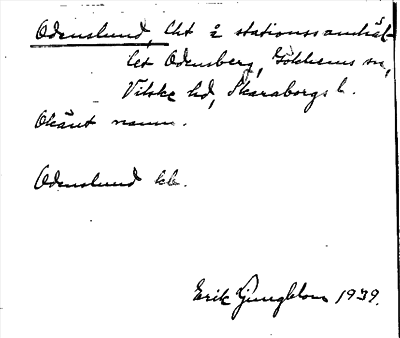 Odenslund, lht å stationssamhäl-
let Odensberg, Gökhems sn,
Vilske hd, Skaraborgs l.
Okänt namn.
Odenslund kb.
Erik Ljungblom 1939.